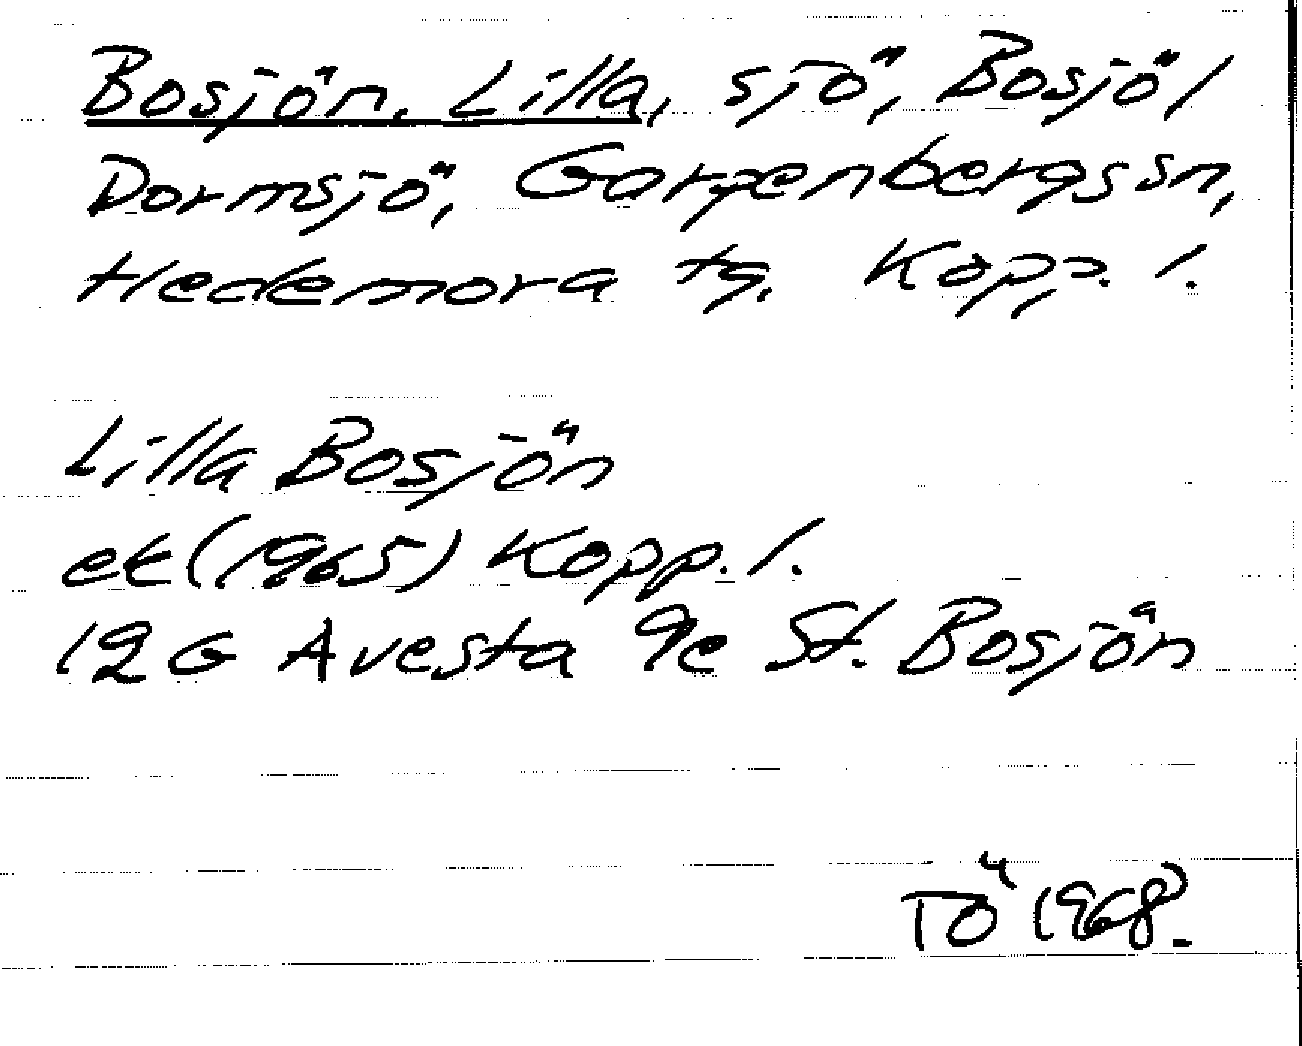 Bosjön, Lilla, sjö, Bosjö/
Dormsjö, Garpenbergs sn,
Hedemora tg. Kopp. l.
Lilla Bosjön
ek (1965) Kopp. l.
12 G Avesta 9e St. Bosjön
TÖ 1968.